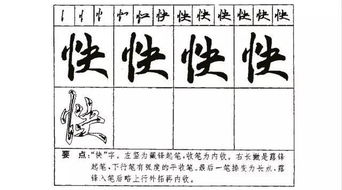 快 快 快 快 快
快 快 快 快
快
要 点：“快”字。左竖为藏锋起笔，收笔为内收。右长撇是露锋
起笔，下行笔有弧度的平收笔。最后一笔捺变为长点，露
锋入笔后略上行外拓再内收。